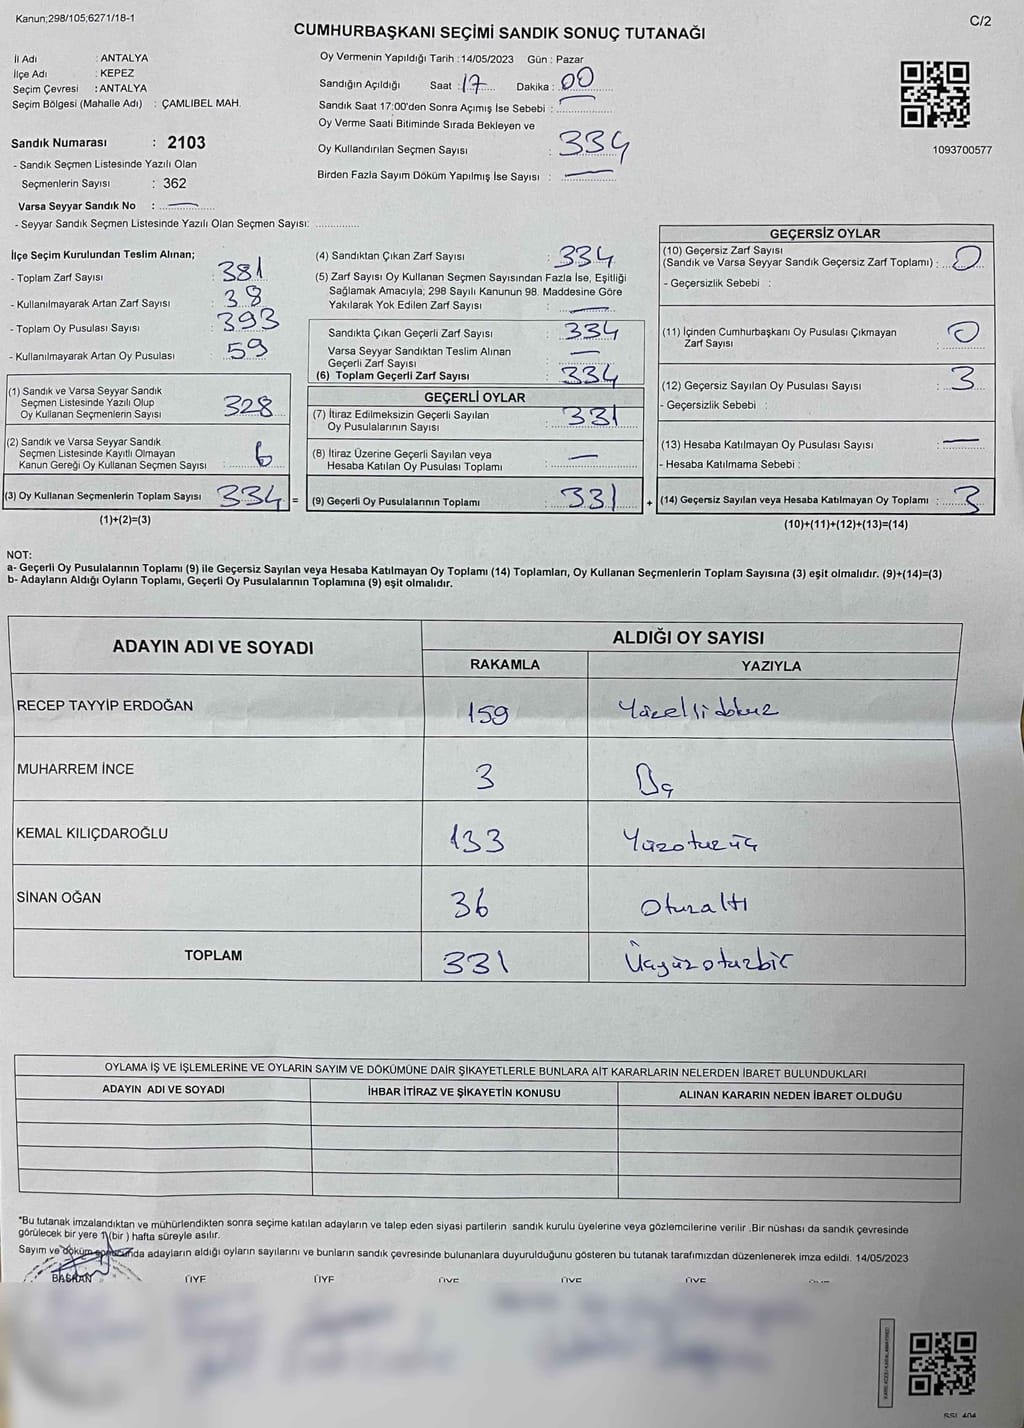 Kanun;298/105;6271/18-1
C/2
CUMHURBAŞKANI SEÇİMİ SANDIK SONUÇ TUTANAĞI
İl Adı : ANTALYA
İlçe Adı : KEPEZ
Seçim Çevresi : ANTALYA
Seçim Bölgesi (Mahalle Adı) : ÇAMLIBEL MAH.
Sandık Numarası : 2103
- Sandık Seçmen Listesinde Yazılı Olan
Seçmenlerin Sayısı : 362
Varsa Seyyar Sandık No : —
- Seyyar Sandık Seçmen Listesinde Yazılı Olan Seçmen Sayısı: ..............
Oy Vermenin Yapıldığı Tarih : 14/05/2023 Gün : Pazar
Sandığın Açıldığı Saat : 17 Dakika : 00
Sandık Saat 17:00'den Sonra Açımış İse Sebebi : —
Oy Verme Saati Bitiminde Sırada Bekleyen ve
Oy Kullandırılan Seçmen Sayısı : 334
Birden Fazla Sayım Döküm Yapılmış İse Sayısı : —
1093700577
İlçe Seçim Kurulundan Teslim Alınan;
- Toplam Zarf Sayısı : 381
- Kullanılmayarak Artan Zarf Sayısı : 38
- Toplam Oy Pusulası Sayısı : 393
- Kullanılmayarak Artan Oy Pusulası : 59
(1) Sandık ve Varsa Seyyar Sandık
Seçmen Listesinde Yazılı Olup
Oy Kullanan Seçmenlerin Sayısı : 328
(2) Sandık ve Varsa Seyyar Sandık
Seçmen Listesinde Kayıtlı Olmayan
Kanun Gereği Oy Kullanan Seçmen Sayısı : 6
(3) Oy Kullanan Seçmenlerin Toplam Sayısı : 334 =
(1)+(2)=(3)
(4) Sandıktan Çıkan Zarf Sayısı : 334
(5) Zarf Sayısı Oy Kullanan Seçmen Sayısından Fazla İse, Eşitliği
Sağlamak Amacıyla; 298 Sayılı Kanunun 98. Maddesine Göre
Yakılarak Yok Edilen Zarf Sayısı : —
Sandıkta Çıkan Geçerli Zarf Sayısı : 334
Varsa Seyyar Sandıktan Teslim Alınan
Geçerli Zarf Sayısı : —
(6) Toplam Geçerli Zarf Sayısı : 334
GEÇERLİ OYLAR
(7) İtiraz Edilmeksizin Geçerli Sayılan
Oy Pusulalarının Sayısı : 331
(8) İtiraz Üzerine Geçerli Sayılan veya
Hesaba Katılan Oy Pusulası Toplamı : —
(9) Geçerli Oy Pusulalarının Toplamı : 331 +
GEÇERSİZ OYLAR
(10) Geçersiz Zarf Sayısı
(Sandık ve Varsa Seyyar Sandık Geçersiz Zarf Toplamı) : 0
- Geçersizlik Sebebi :
(11) İçinden Cumhurbaşkanı Oy Pusulası Çıkmayan
Zarf Sayısı : 0
(12) Geçersiz Sayılan Oy Pusulası Sayısı : 3
- Geçersizlik Sebebi :
(13) Hesaba Katılmayan Oy Pusulası Sayısı : —
- Hesaba Katılmama Sebebi :
(14) Geçersiz Sayılan veya Hesaba Katılmayan Oy Toplamı : 3
(10)+(11)+(12)+(13)=(14)
NOT:
a- Geçerli Oy Pusulalarının Toplamı (9) ile Geçersiz Sayılan veya Hesaba Katılmayan Oy Toplamı (14) Toplamları, Oy Kullanan Seçmenlerin Toplam Sayısına (3) eşit olmalıdır. (9)+(14)=(3)
b- Adayların Aldığı Oyların Toplamı, Geçerli Oy Pusulalarının Toplamına (9) eşit olmalıdır.
ADAYIN ADI VE SOYADI ALDIĞI OY SAYISI
RAKAMLA YAZIYLA
RECEP TAYYİP ERDOĞAN 159 Yüzellidokuz
MUHARREM İNCE 3 Üç
KEMAL KILIÇDAROĞLU 133 Yüzotuzüç
SİNAN OĞAN 36 Otuzaltı
TOPLAM 331 Üçyüzotuzbir
OYLAMA İŞ VE İŞLEMLERİNE VE OYLARIN SAYIM VE DÖKÜMÜNE DAİR ŞİKAYETLERLE BUNLARA AİT KARARLARIN NELERDEN İBARET BULUNDUKLARI
ADAYIN ADI VE SOYADI İHBAR İTİRAZ VE ŞİKAYETİN KONUSU ALINAN KARARIN NEDEN İBARET OLDUĞU
*Bu tutanak imzalandıktan ve mühürlendikten sonra seçime katılan adayların ve talep eden siyasi partilerin sandık kurulu üyelerine veya gözlemcilerine verilir .Bir nüshası da sandık çevresinde
görülecek bir yere 1 (bir ) hafta süreyle asılır.
Sayım ve döküm sonucunda adayların aldığı oyların sayılarını ve bunların sandık çevresinde bulunanlara duyurulduğunu gösteren bu tutanak tarafımızdan düzenlenerek imza edildi. 14/05/2023
BAŞKAN ÜYE ÜYE ÜYE ÜYE ÜYE